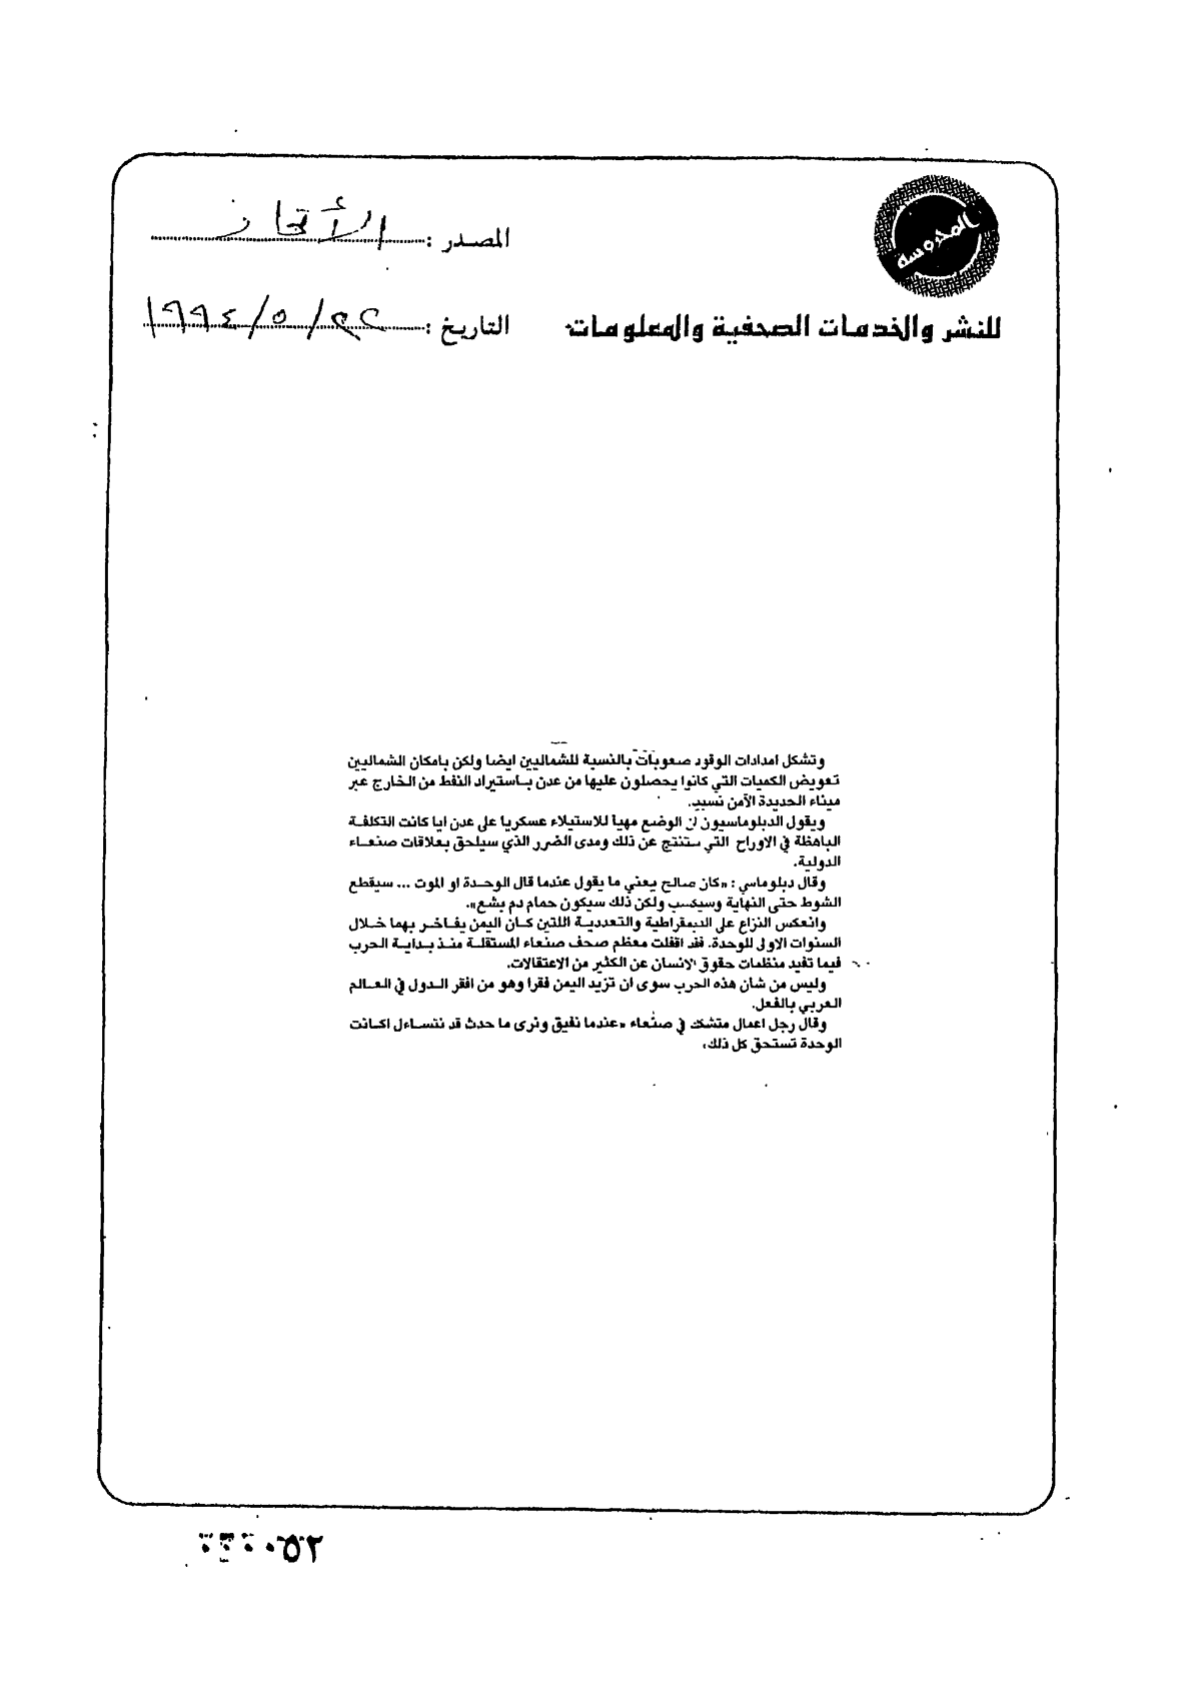 المحروسة
للنشر والخدمات الصحفية والمعلومات
المصدر :
التاريخ : ٢٢/٥/١٩٩٤
وتشكل امدادات الوقود صعوبات بالنسبة للشماليين ايضا ولكن بامكان الشماليين
تعويض الكميات التي كانوا يحصلون عليها من عدن باستيراد النفط من الخارج عبر
ميناء الحديدة الآمن نسبيا.
ويقول الدبلوماسيون ان الوضع مهيأ للاستيلاء عسكريا على عدن ايا كانت التكلفة
الباهظة في الاوراح التي ستنتج عن ذلك ومدى الضرر الذي سيلحق بعلاقات صنعاء
الدولية.
وقال دبلوماسي : «كان صالح يعني ما يقول عندما قال الوحدة او الموت ... سيقطع
الشوط حتى النهاية وسيكسب ولكن ذلك سيكون حمام دم بشع».
وانعكس النزاع على الديمقراطية والتعددية اللتين كان اليمن يفاخر بهما خلال
السنوات الاولى للوحدة. فقد اقفلت معظم صحف صنعاء المستقلة منذ بداية الحرب
فيما تفيد منظمات حقوق الانسان عن الكثير من الاعتقالات.
وليس من شان هذه الحرب سوى ان تزيد اليمن فقرا وهو من افقر الدول في العالم
العربي بالفعل.
وقال رجل اعمال متشكك في صنعاء «عندما نفيق ونرى ما حدث قد نتساءل اكانت
الوحدة تستحق كل ذلك»